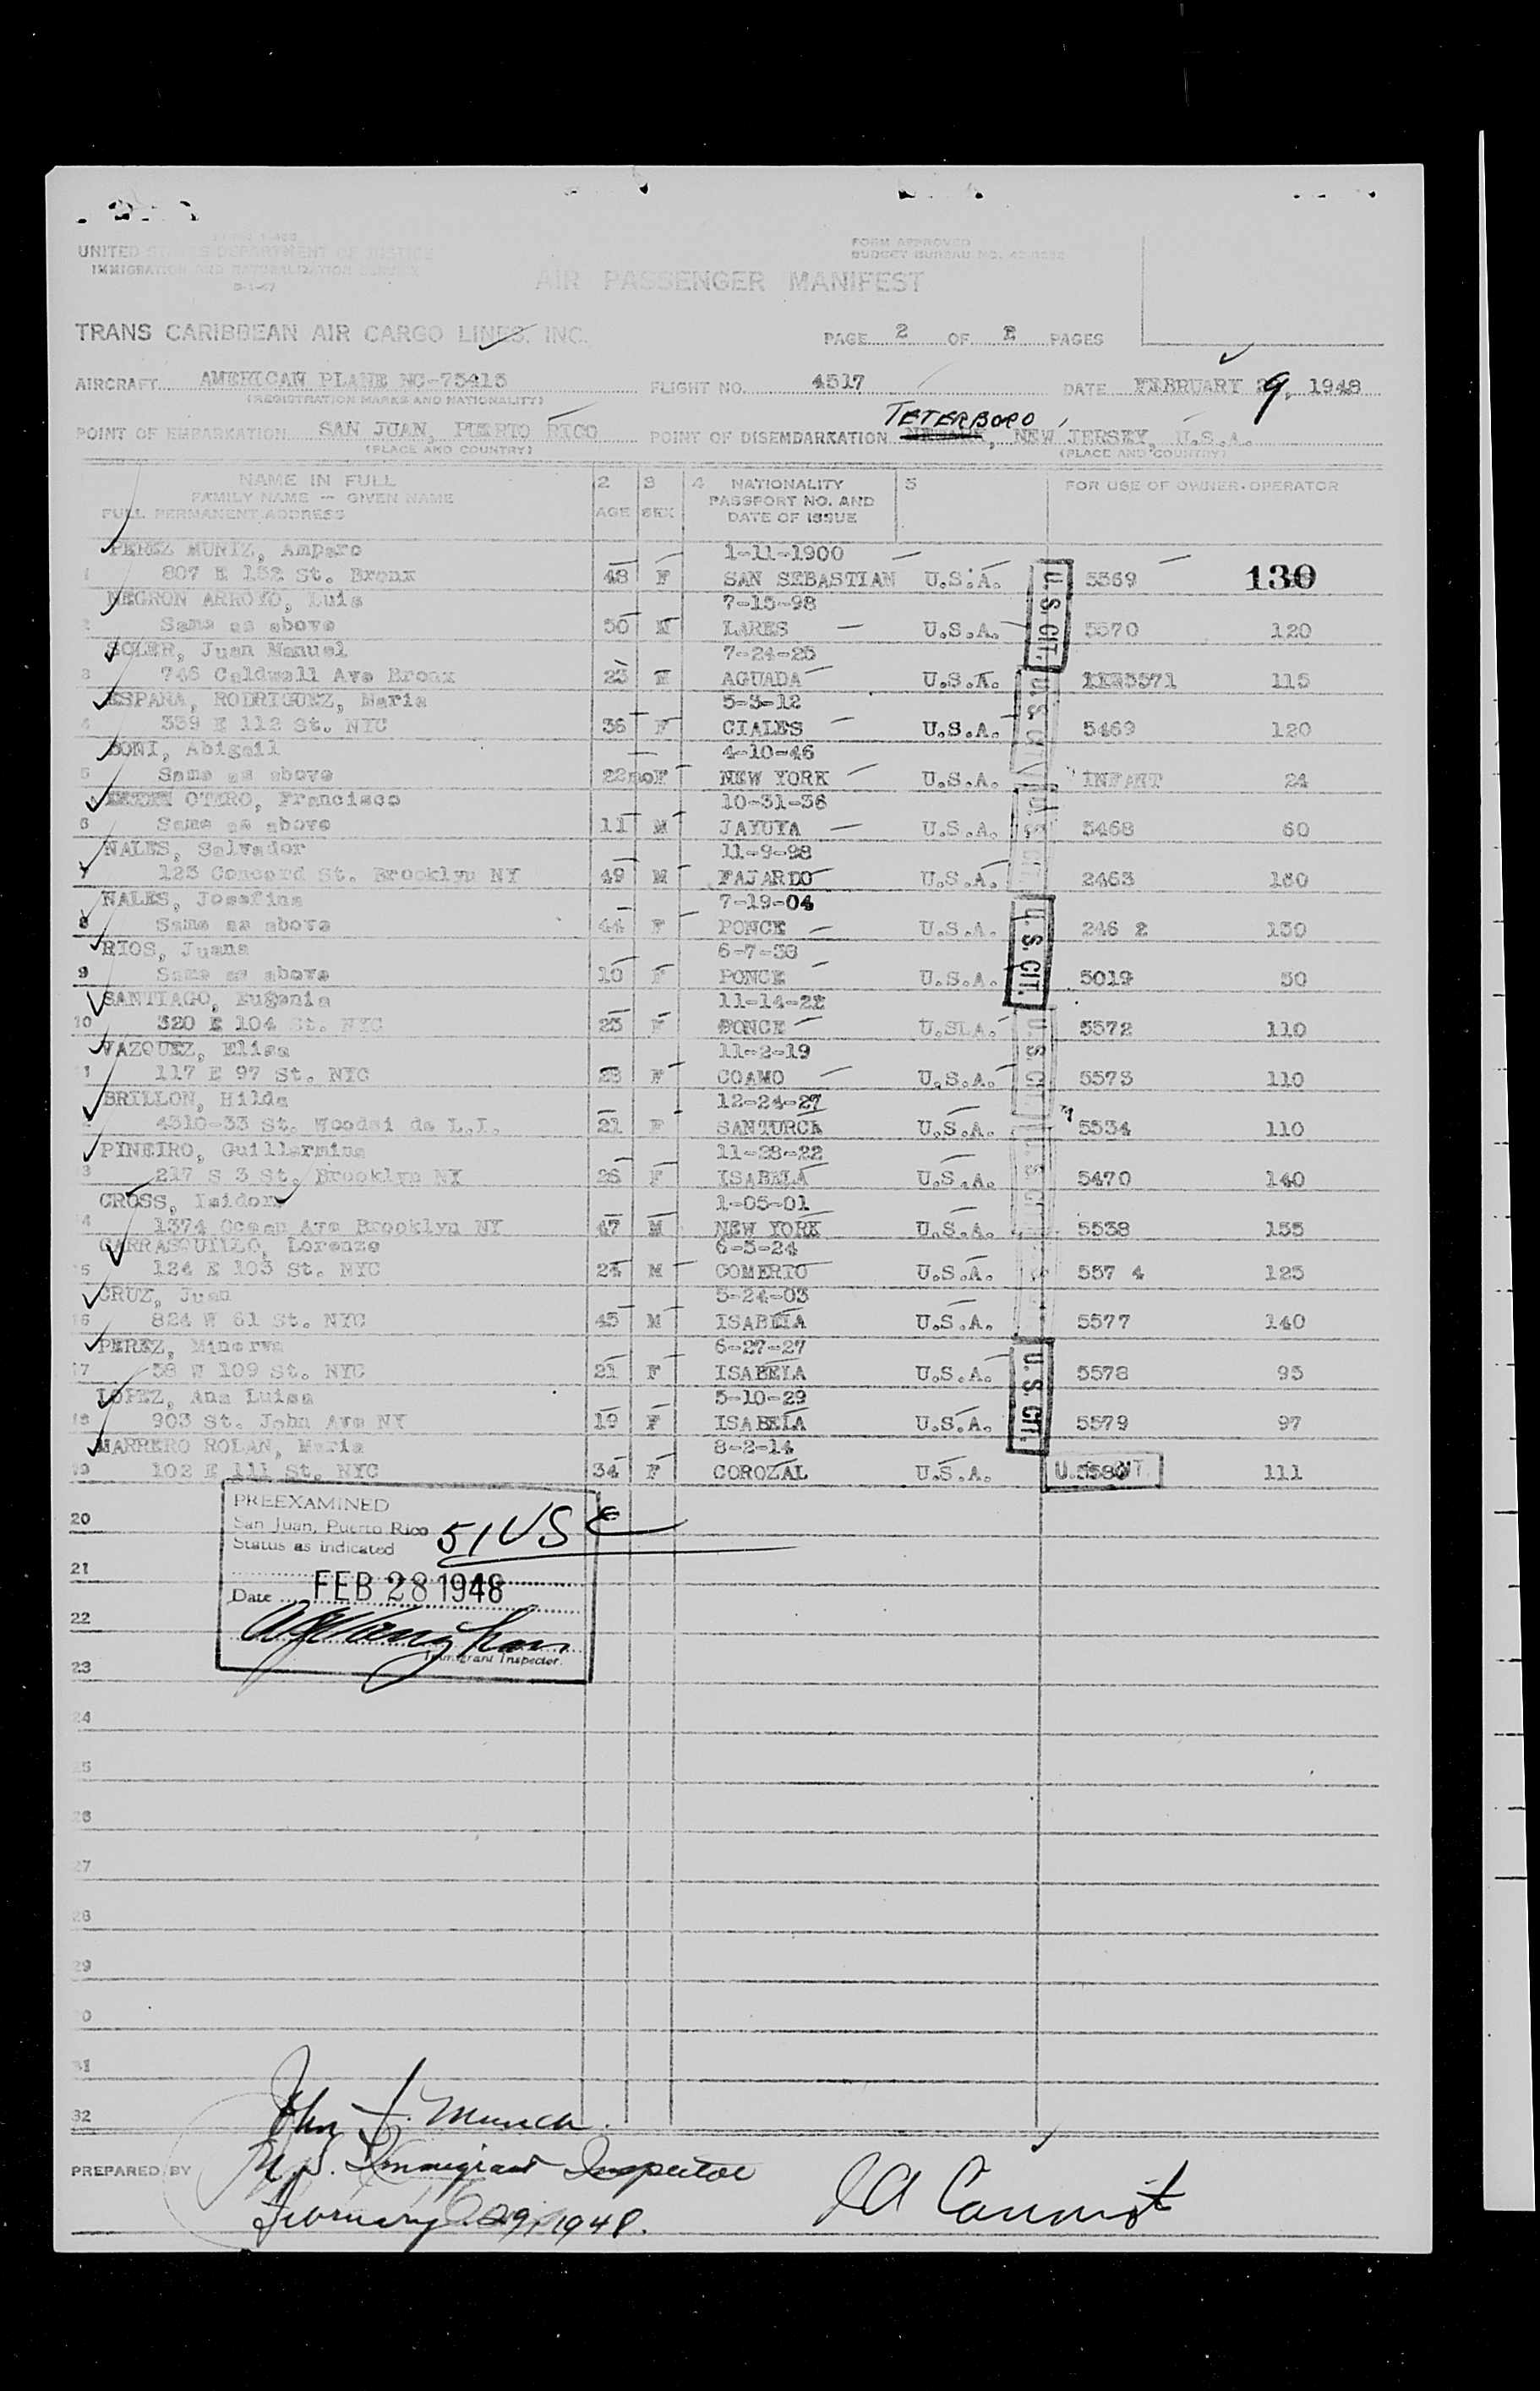 UNITED STATES DEPARTMENT OF JUSTICE
IMMIGRATION AND NATURALIZATION SERVICE
FORM APPROVED
BUDGET BUREAU NO.
AIR PASSENGER MANIFEST
TRANS CARIBBEAN AIR CARGO LINES, INC.
PAGE 2 OF 2 PAGES
AIRCRAFT AMERICAN PLANE NC-75415 FLIGHT NO. 4517 DATE FEBRUARY 29, 1948
(REGISTRATION MARKS AND NATIONALITY)
TETERBORO
POINT OF EMBARKATION SAN JUAN, PUERTO RICO POINT OF DISEMBARKATION NEWARK, NEW JERSEY, U.S.A.
(PLACE AND COUNTRY) (PLACE AND COUNTRY)
NAME IN FULL 2 3 4 NATIONALITY 5 FOR USE OF OWNER-OPERATOR
FAMILY NAME — GIVEN NAME PASSPORT NO. AND
FULL PERMANENT ADDRESS AGE SEX DATE OF ISSUE
PEREZ MUNIZ, Amparo 1-11-1900
1 807 E 152 St. Bronx 48 F SAN SEBASTIAN U.S.A. 5569 130
NEGRON ARROYO, Luis 7-15-98
2 Same as above 50 M LARES U.S.A. 5570 120
SOLER, Juan Manuel 7-24-25
3 746 Caldwell Ave Bronx 23 M AGUADA U.S.A. 5571 115
ESPANA, RODRIGUEZ, Maria 5-3-12
4 339 E 112 St. NYC 36 F CIALES U.S.A. 5469 120
BONI, Abigail 4-10-46
5 Same as above 22mo F NEW YORK U.S.A. INFANT 24
OTERO, Francisco 10-31-36
6 Same as above 11 M JAYUYA U.S.A. 5468 60
NALES, Salvador 11-9-98
123 Concord St. Brooklyn NY 49 M FAJARDO U.S.A. 2463 160
NALES, Josefina 7-19-04
8 Same as above 44 F PONCE U.S.A. 246 2 130
RIOS, Juana 6-7-38
9 Same as above 10 F PONCE U.S.A. 5019 50
SANTIAGO, Eugenia 11-14-22
10 320 E 104 St. NYC 25 F PONCE U.SLA. 5572 110
VAZQUEZ, Elisa 11-2-19
117 E 97 St. NYC 28 F COAMO U.S.A. 5573 110
BRILLON, Hilda 12-24-27
4310-33 St. Woodsi de L.I. 21 F SANTURCE U.S.A. 5534 110
PINEIRO, Guillermina 11-28-22
13 217 S 3 St. Brooklyn NY 26 F ISABELA U.S.A. 5470 140
CROSS, Isidore 1-05-01
14 1374 Ocean Ave Brooklyn NY 47 M NEW YORK U.S.A. 5538 155
CARRASQUILLO, Lorenzo 6-3-24
15 124 E 103 St. NYC 24 M COMERIO U.S.A. 557 4 125
CRUZ, Juan 5-24-03
16 824 W 61 St. NYC 45 M ISABELA U.S.A. 5577 140
PEREZ, Minerva 6-27-27
17 58 W 109 St. NYC 21 F ISABELA U.S.A. 5578 95
LOPEZ, Ana Luisa 5-10-29
18 903 St. John Ave NY 19 F ISABELA U.S.A. 5579 97
MARRERO ROLAN, Maria 8-2-14
19 102 E 111 St. NYC 34 F COROZAL U.S.A. 5580 111
U.S. CIT.
U.S. CIT.
U.S. CIT.
U.S. CIT.
U.S. CIT.
20
21
22
23
24
25
26
27
28
29
30
31
32
PREEXAMINED
San Juan, Puerto Rico 51 USC
Status as indicated
Date FEB 28 1948
Immigrant Inspector.
John J. Munch
PREPARED BY U.S. Immigrant Inspector
February 29, 1948.